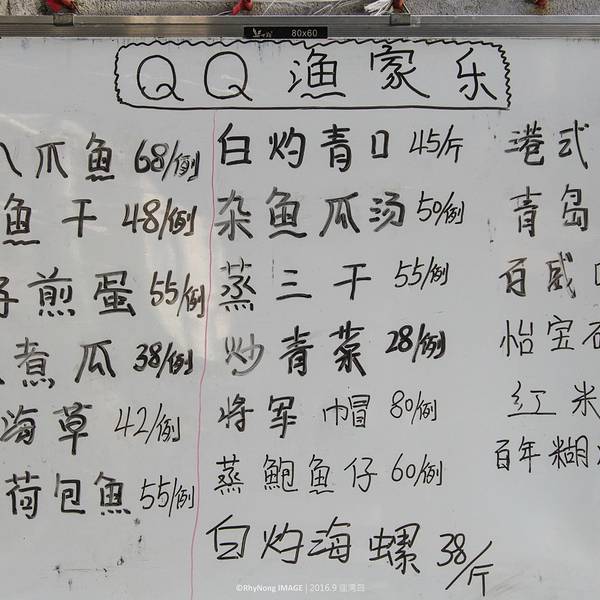 80x60
QQ渔家乐
八爪鱼 68/例
鱼干 48/例
仔煎蛋 55/例
煮瓜 38/例
海草 42/例
荷包鱼 55/例
白灼青口 45/斤
杂鱼瓜汤 50/例
蒸三干 55/例
炒青菜 28/例
将军帽 80/例
蒸鲍鱼仔 60/例
白灼海螺 38/斤
港式
青岛
百威
怡宝
红米
百年糊
©RhyNong IMAGE | 2016.9 庙湾岛